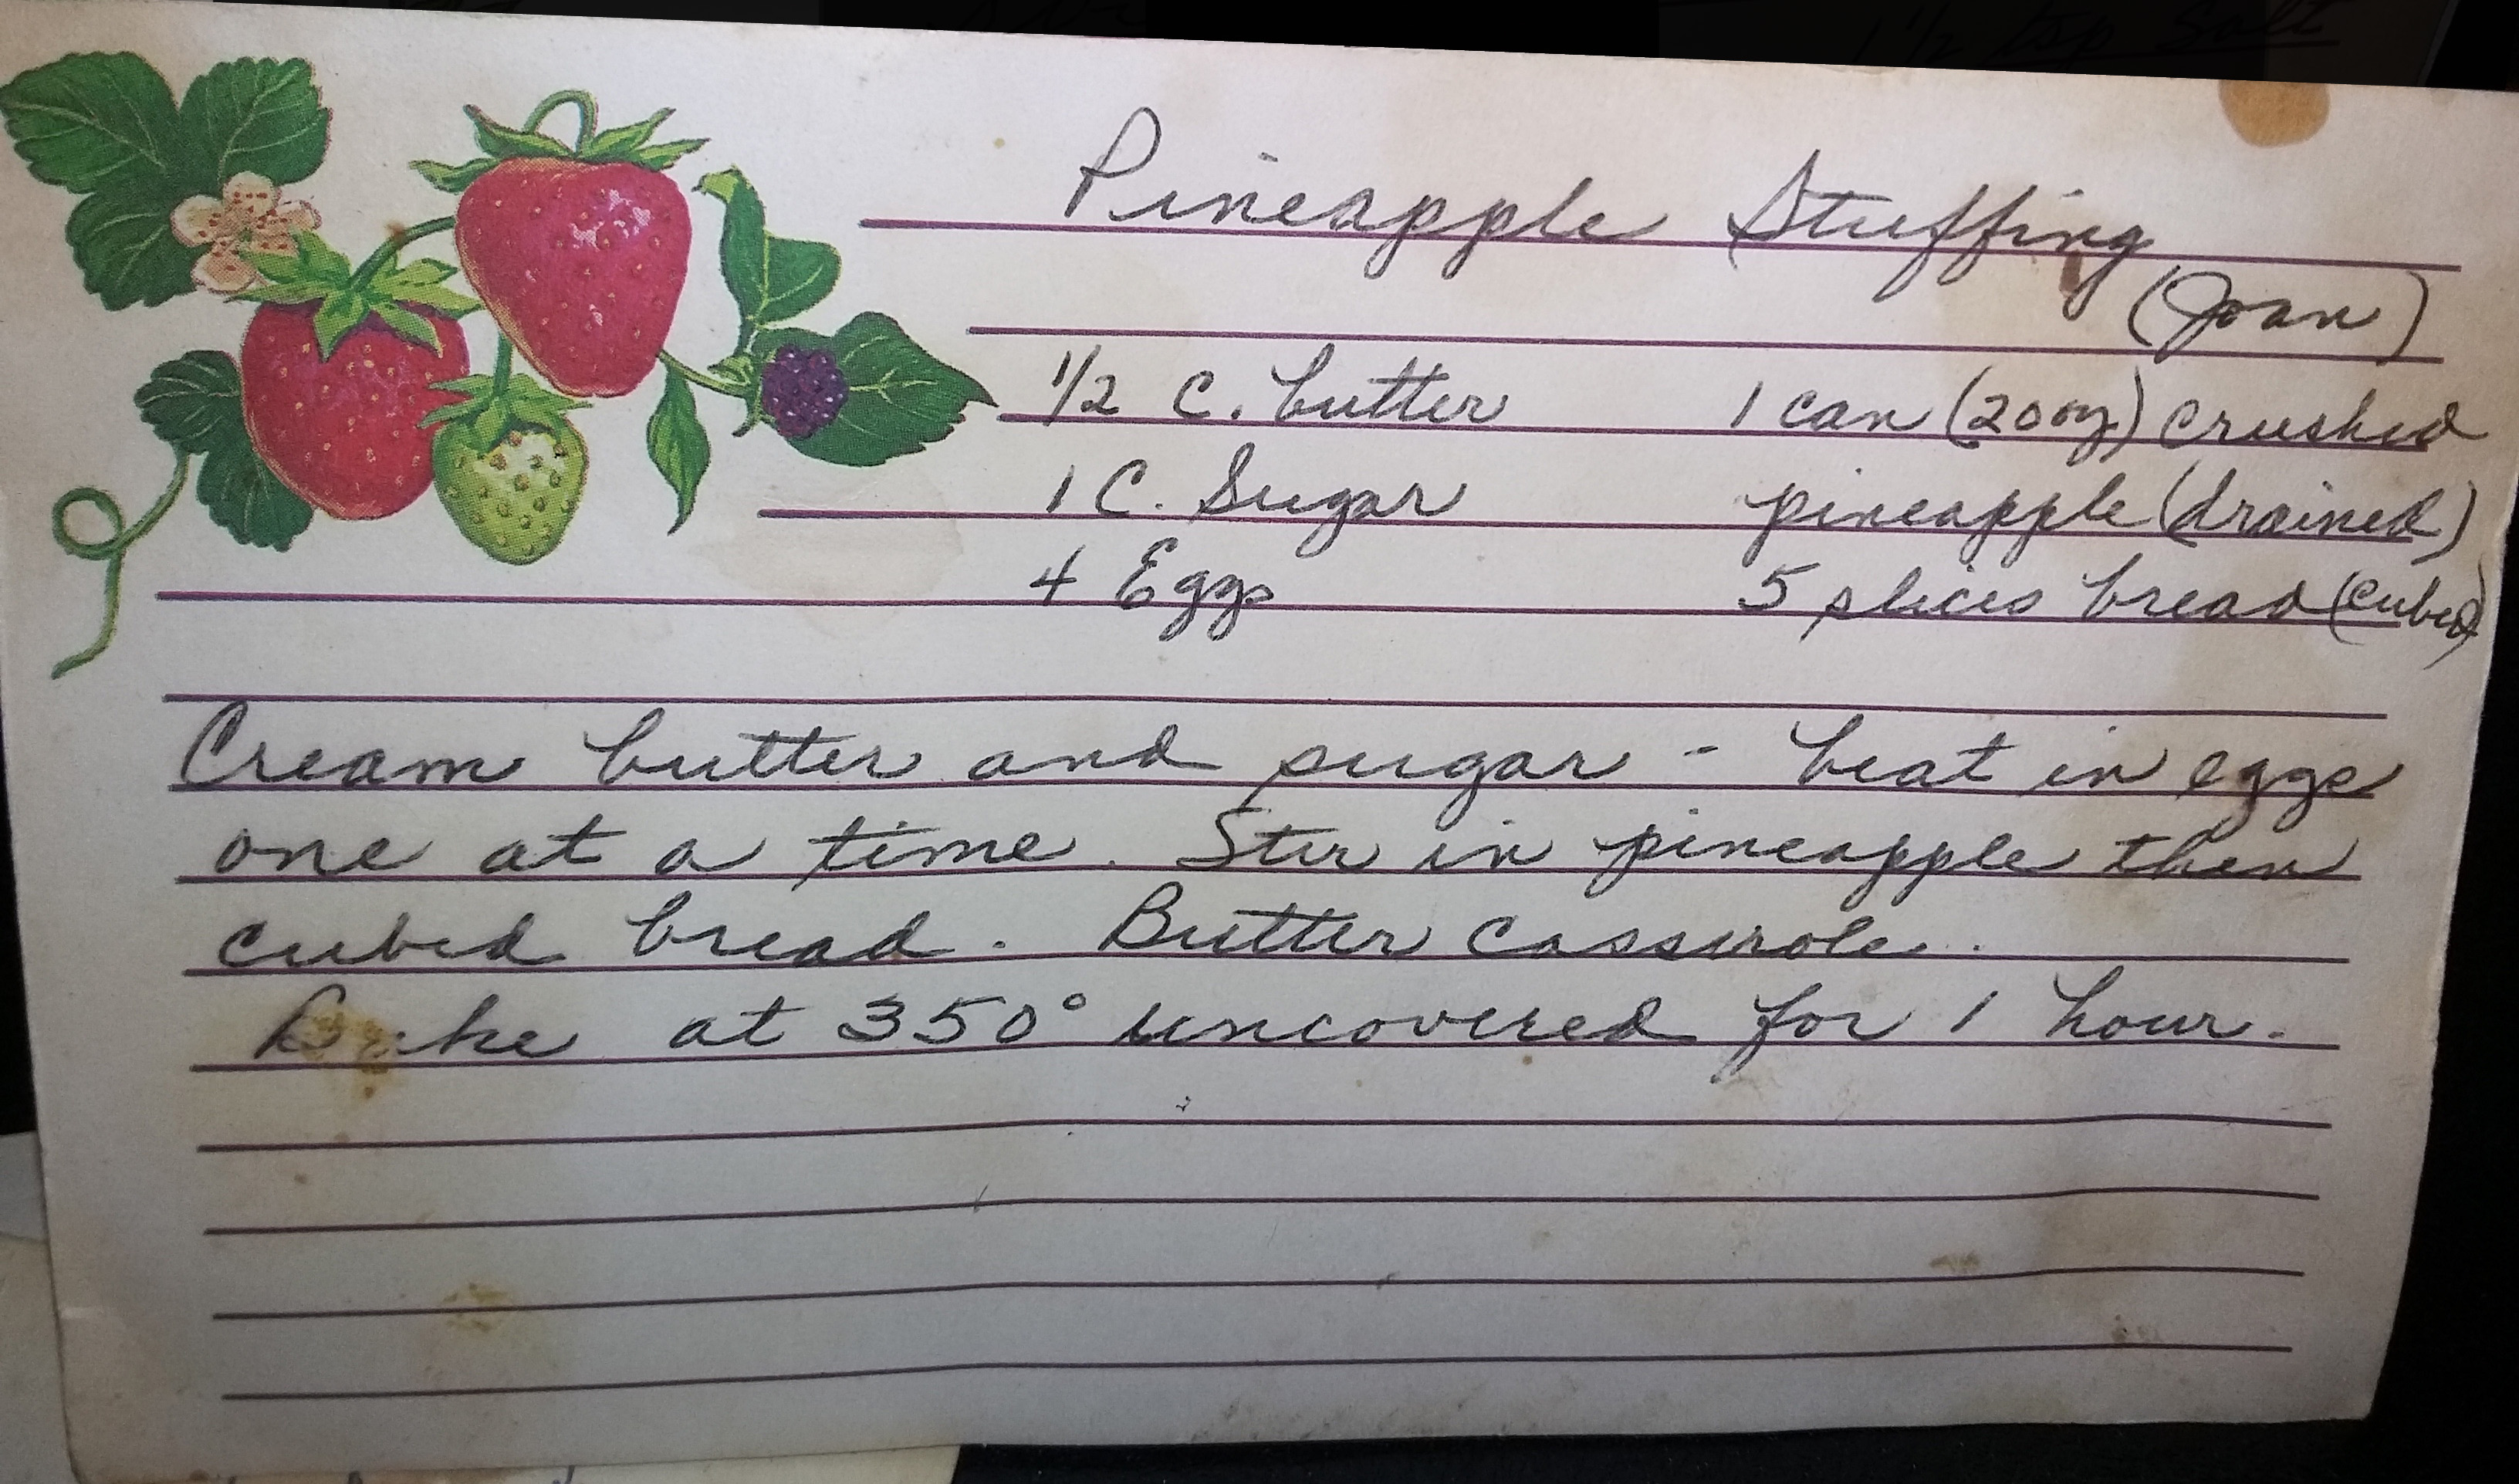 Pineapple Stuffing
(Joan)
1/2 c. butter 1 can (20 oz) crushed
1 C. Sugar pineapple (drained)
4 Eggs 5 slices bread (cubed)
Cream butter and sugar - beat in eggs
one at a time. Stir in pineapple then
cubed bread. Butter casserole.
Bake at 350° uncovered for 1 hour.
1 1/2 tsp Salt